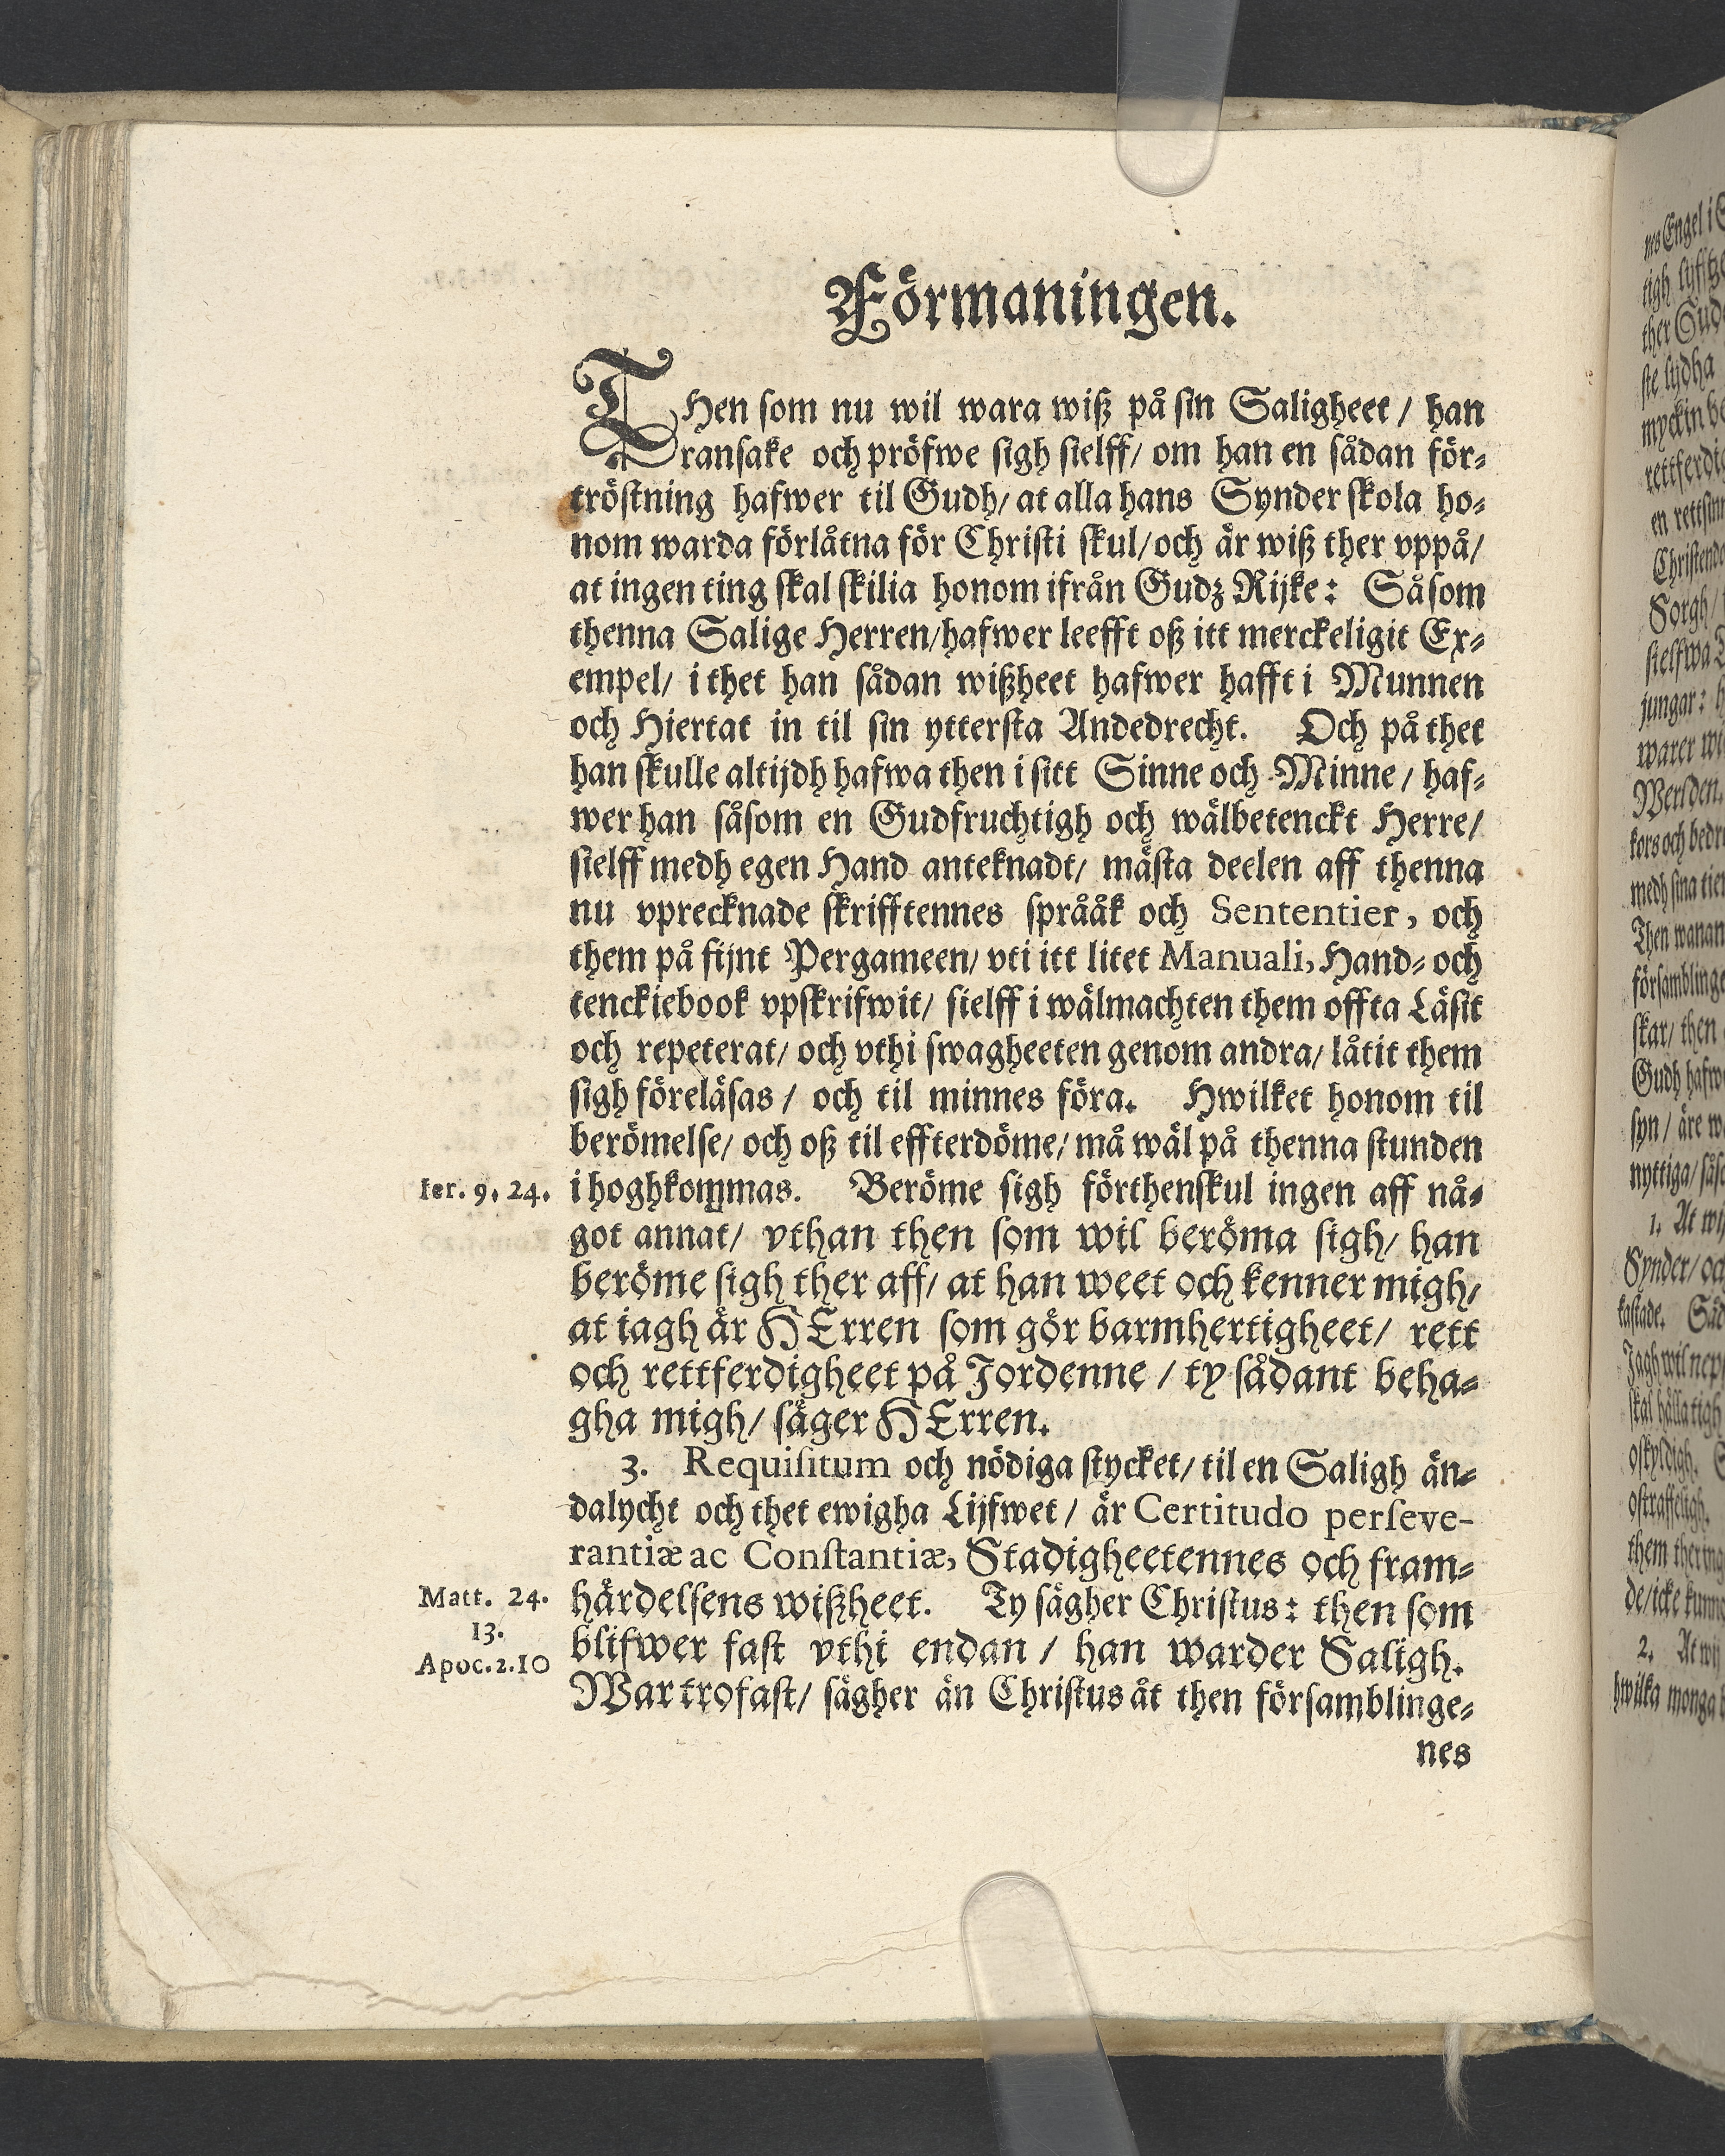 Förmaningen.
THen som nu wil wara wiß på sin Saligheet / han
ransake och pröfwe sigh sielff / om han en sådan för-
tröstning hafwer til Gudh / at alla hans Synder skola ho-
nom warda förlåtna för Christi skul / och är wiß ther vppå /
at ingen ting skal skilia honom ifrån Gudz Rijke: Såsom
thenna Salige Herren / hafwer leefft oß itt merckeligit Ex-
empel / i thet han sådan wißheet hafwer hafft i Munnen
och Hiertat in til sin yttersta Andedrecht. Och på thet
han skulle altijdh hafwa then i sitt Sinne och Minne / haf-
wer han såsom en Gudfruchtigh och wälbetenckt Herre /
sielff medh egen Hand anteknadt / mästa deelen aff thenna
nu vprecknade skrifftennes språåk och Sententier, och
them på fijnt Pergameen / vti itt litet Manuali, Hand- och
tenckiebook vpskrifwit / sielff i wälmachten them offta Läsit
och repeterat / och vthi swagheeten genom andra / låtit them
sigh föreläsas / och til minnes föra. Hwilket honom til
berömelse / och oß til effterdöme / må wäl på thenna stunden
Ier. 9, 24. i hoghkommas. Beröme sigh förthenskul ingen aff nå-
got annat / vthan then som wil beröma sigh / han
beröme sigh ther aff / at han weet och kenner migh /
at iagh är HErren som gör barmhertigheet / rett
och rettferdigheet på Jordenne / ty sådant beha-
gha migh / säger HErren.
3. Requisitum och nödiga stycket / til en Saligh än-
dalycht och thet ewigha Lijfwet / är Certitudo perseve-
rantiæ ac Constantiæ, Stadigheetennes och fram-
Matt. 24. härdelsens wißheet. Ty sägher Christus: then som
13.
blifwer fast vthi endan / han warder Saligh.
Apoc.2.10
War trofast / sägher än Christus åt then församblinge-
nes